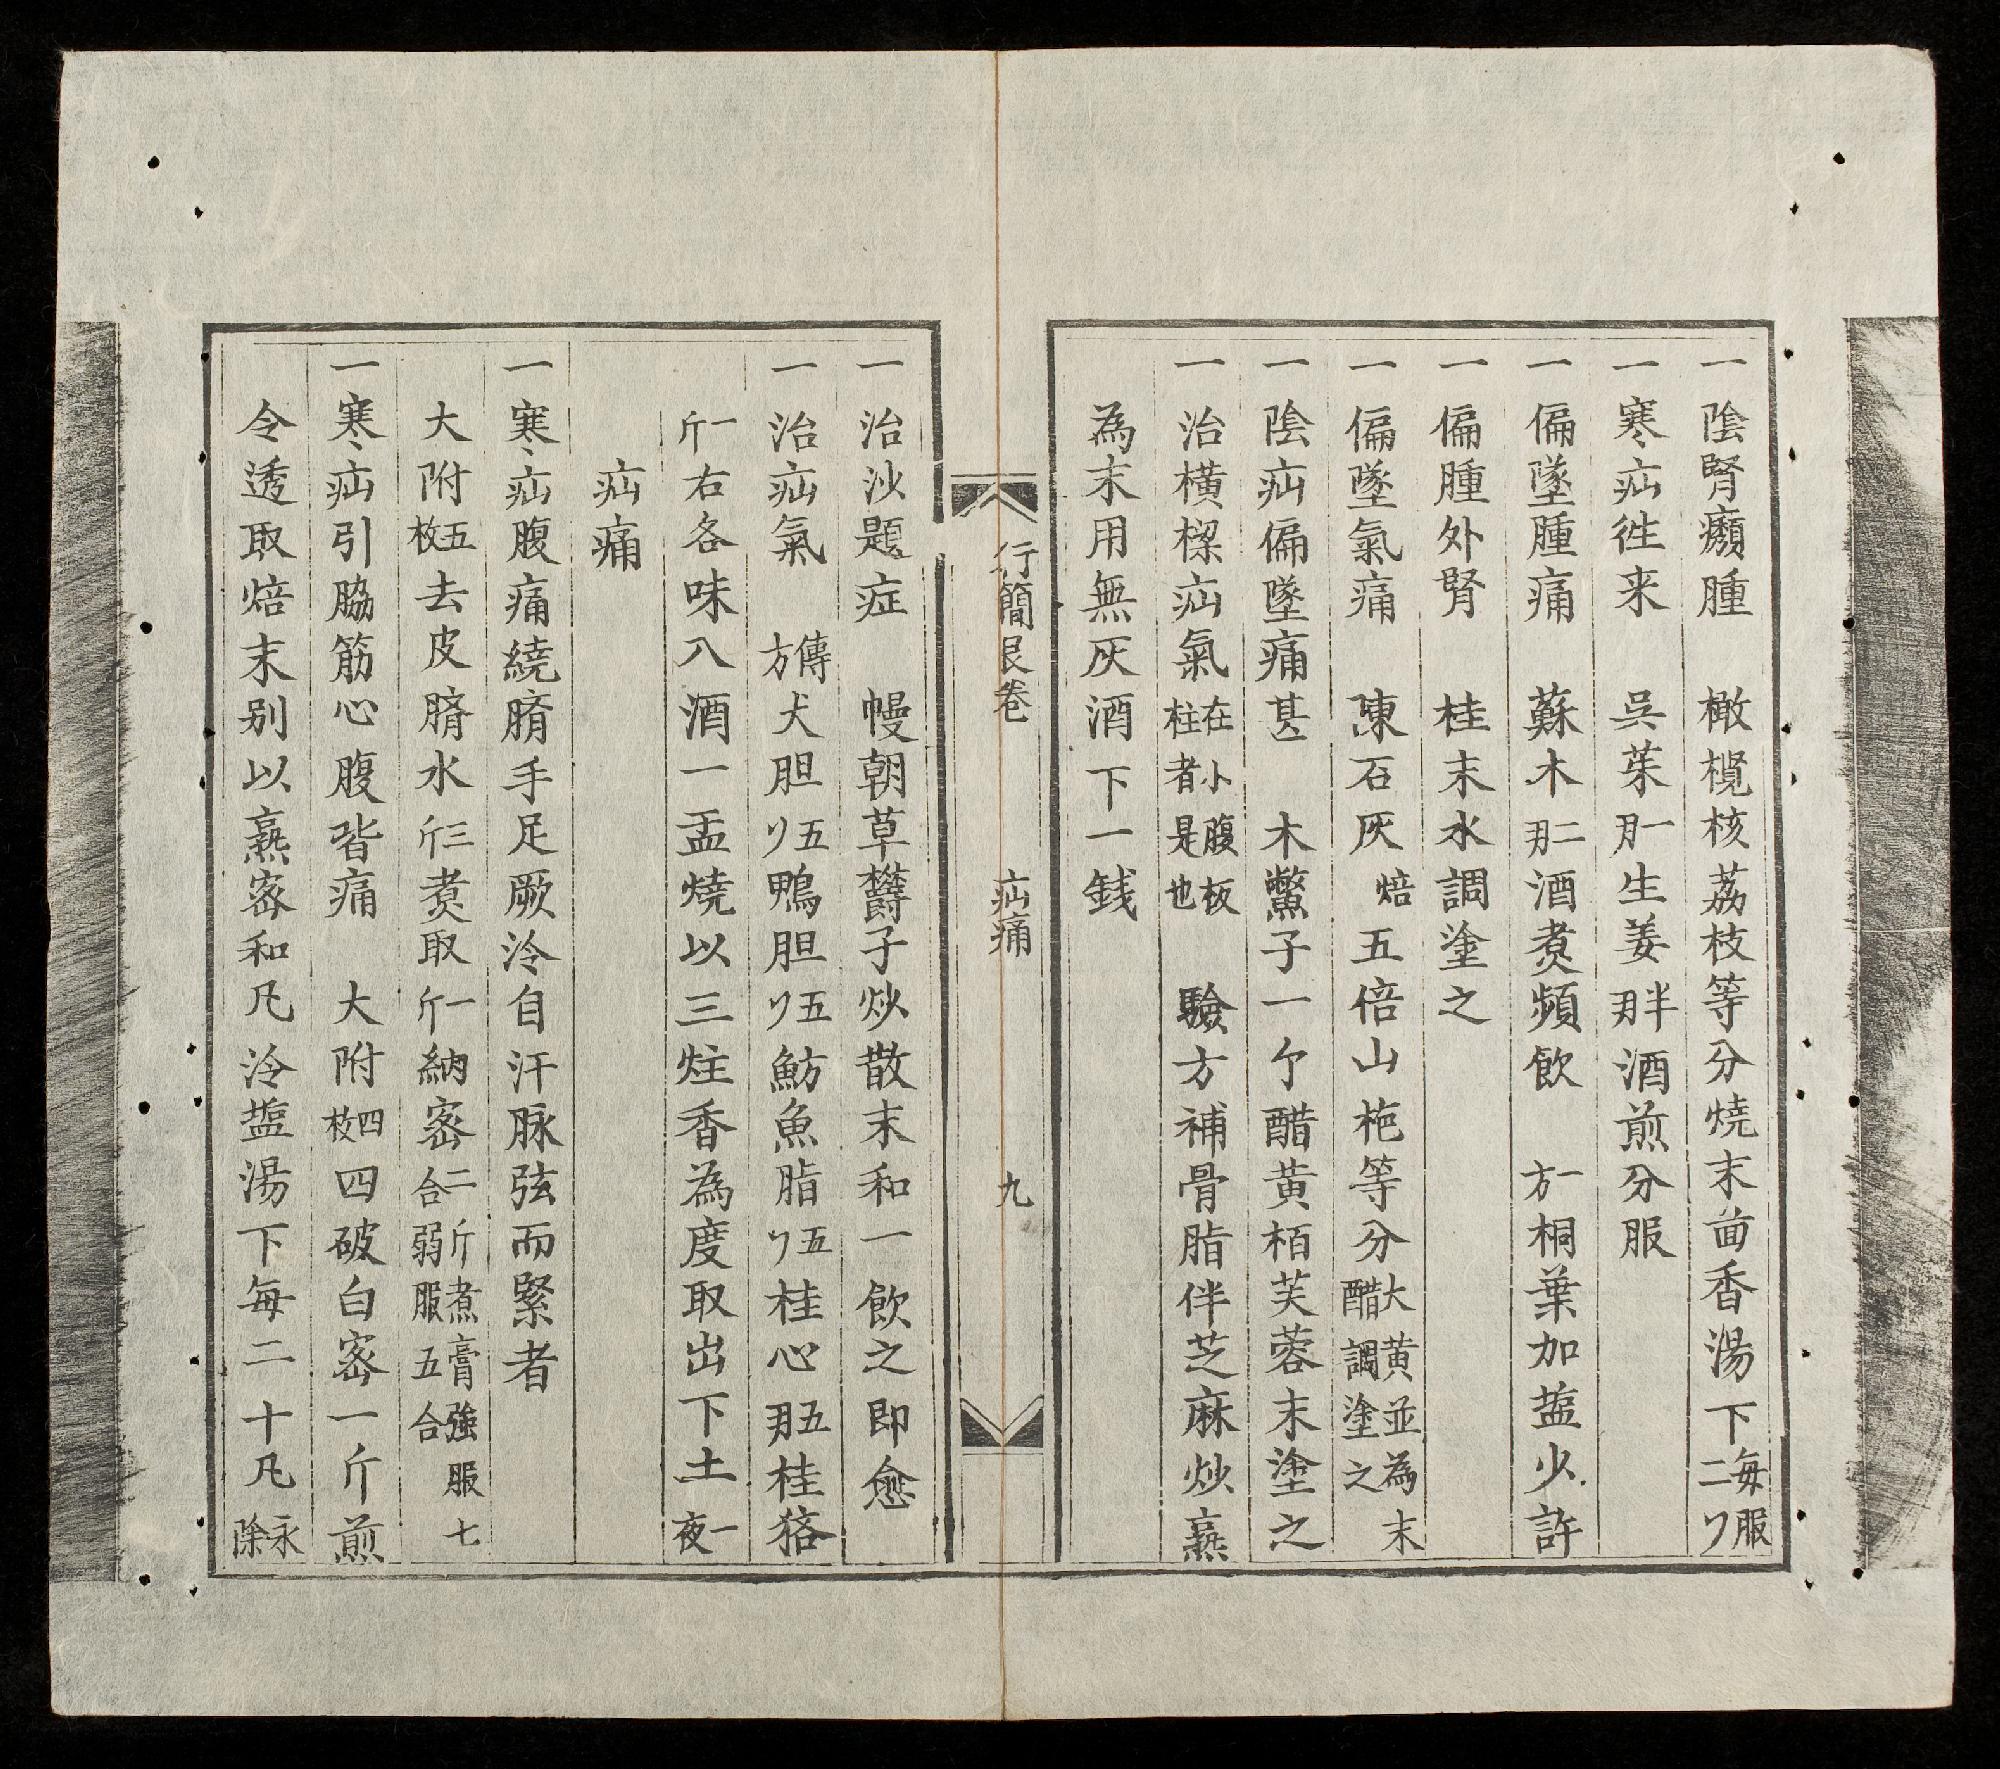 一陰腎癩腫 橄欖核荔枝等分燒末茴香湯下每服二𠃌
一寒疝徃来 呉茱一刃生姜半刃酒煎分服
一偏墜腫痛 蘇木二刃酒煑頻飲 一方桐葉加塩少許
一偏腫外腎 桂末水調塗之
一偏墜氣痛 陳石灰焙五倍山梔等分大黄並為末醋調塗之
一陰疝偏墜痛甚 木鱉子一个醋黄栢芙蓉末塗之
一治橫樑疝氣在小腹板柱者是也 驗方補骨脂伴芝麻炒熏
為末用無灰酒下一錢
行簡艮卷 疝痛 九
一治沙題症 幔朝草欝子炒散末和一飲之即愈
一治疝氣 傳方犬胆五𠃌鴨胆五𠃌魴魚脂五𠃌桂心五刃桂狢
一斤右各味入酒一盂燒以三炷香為度取出下土一夜
疝痛
一寒疝腹痛繞臍手足厥冷自汗脉弦而緊者
大附五枚去皮臍水三斤煑取一斤納宻二斤煮膏強服七合弱服五合
一寒疝引脇筋心腹皆痛 大附四枚四破白宻一斤煎
令透取焙末别以熏宻和凡冷塩湯下每二十凡永除